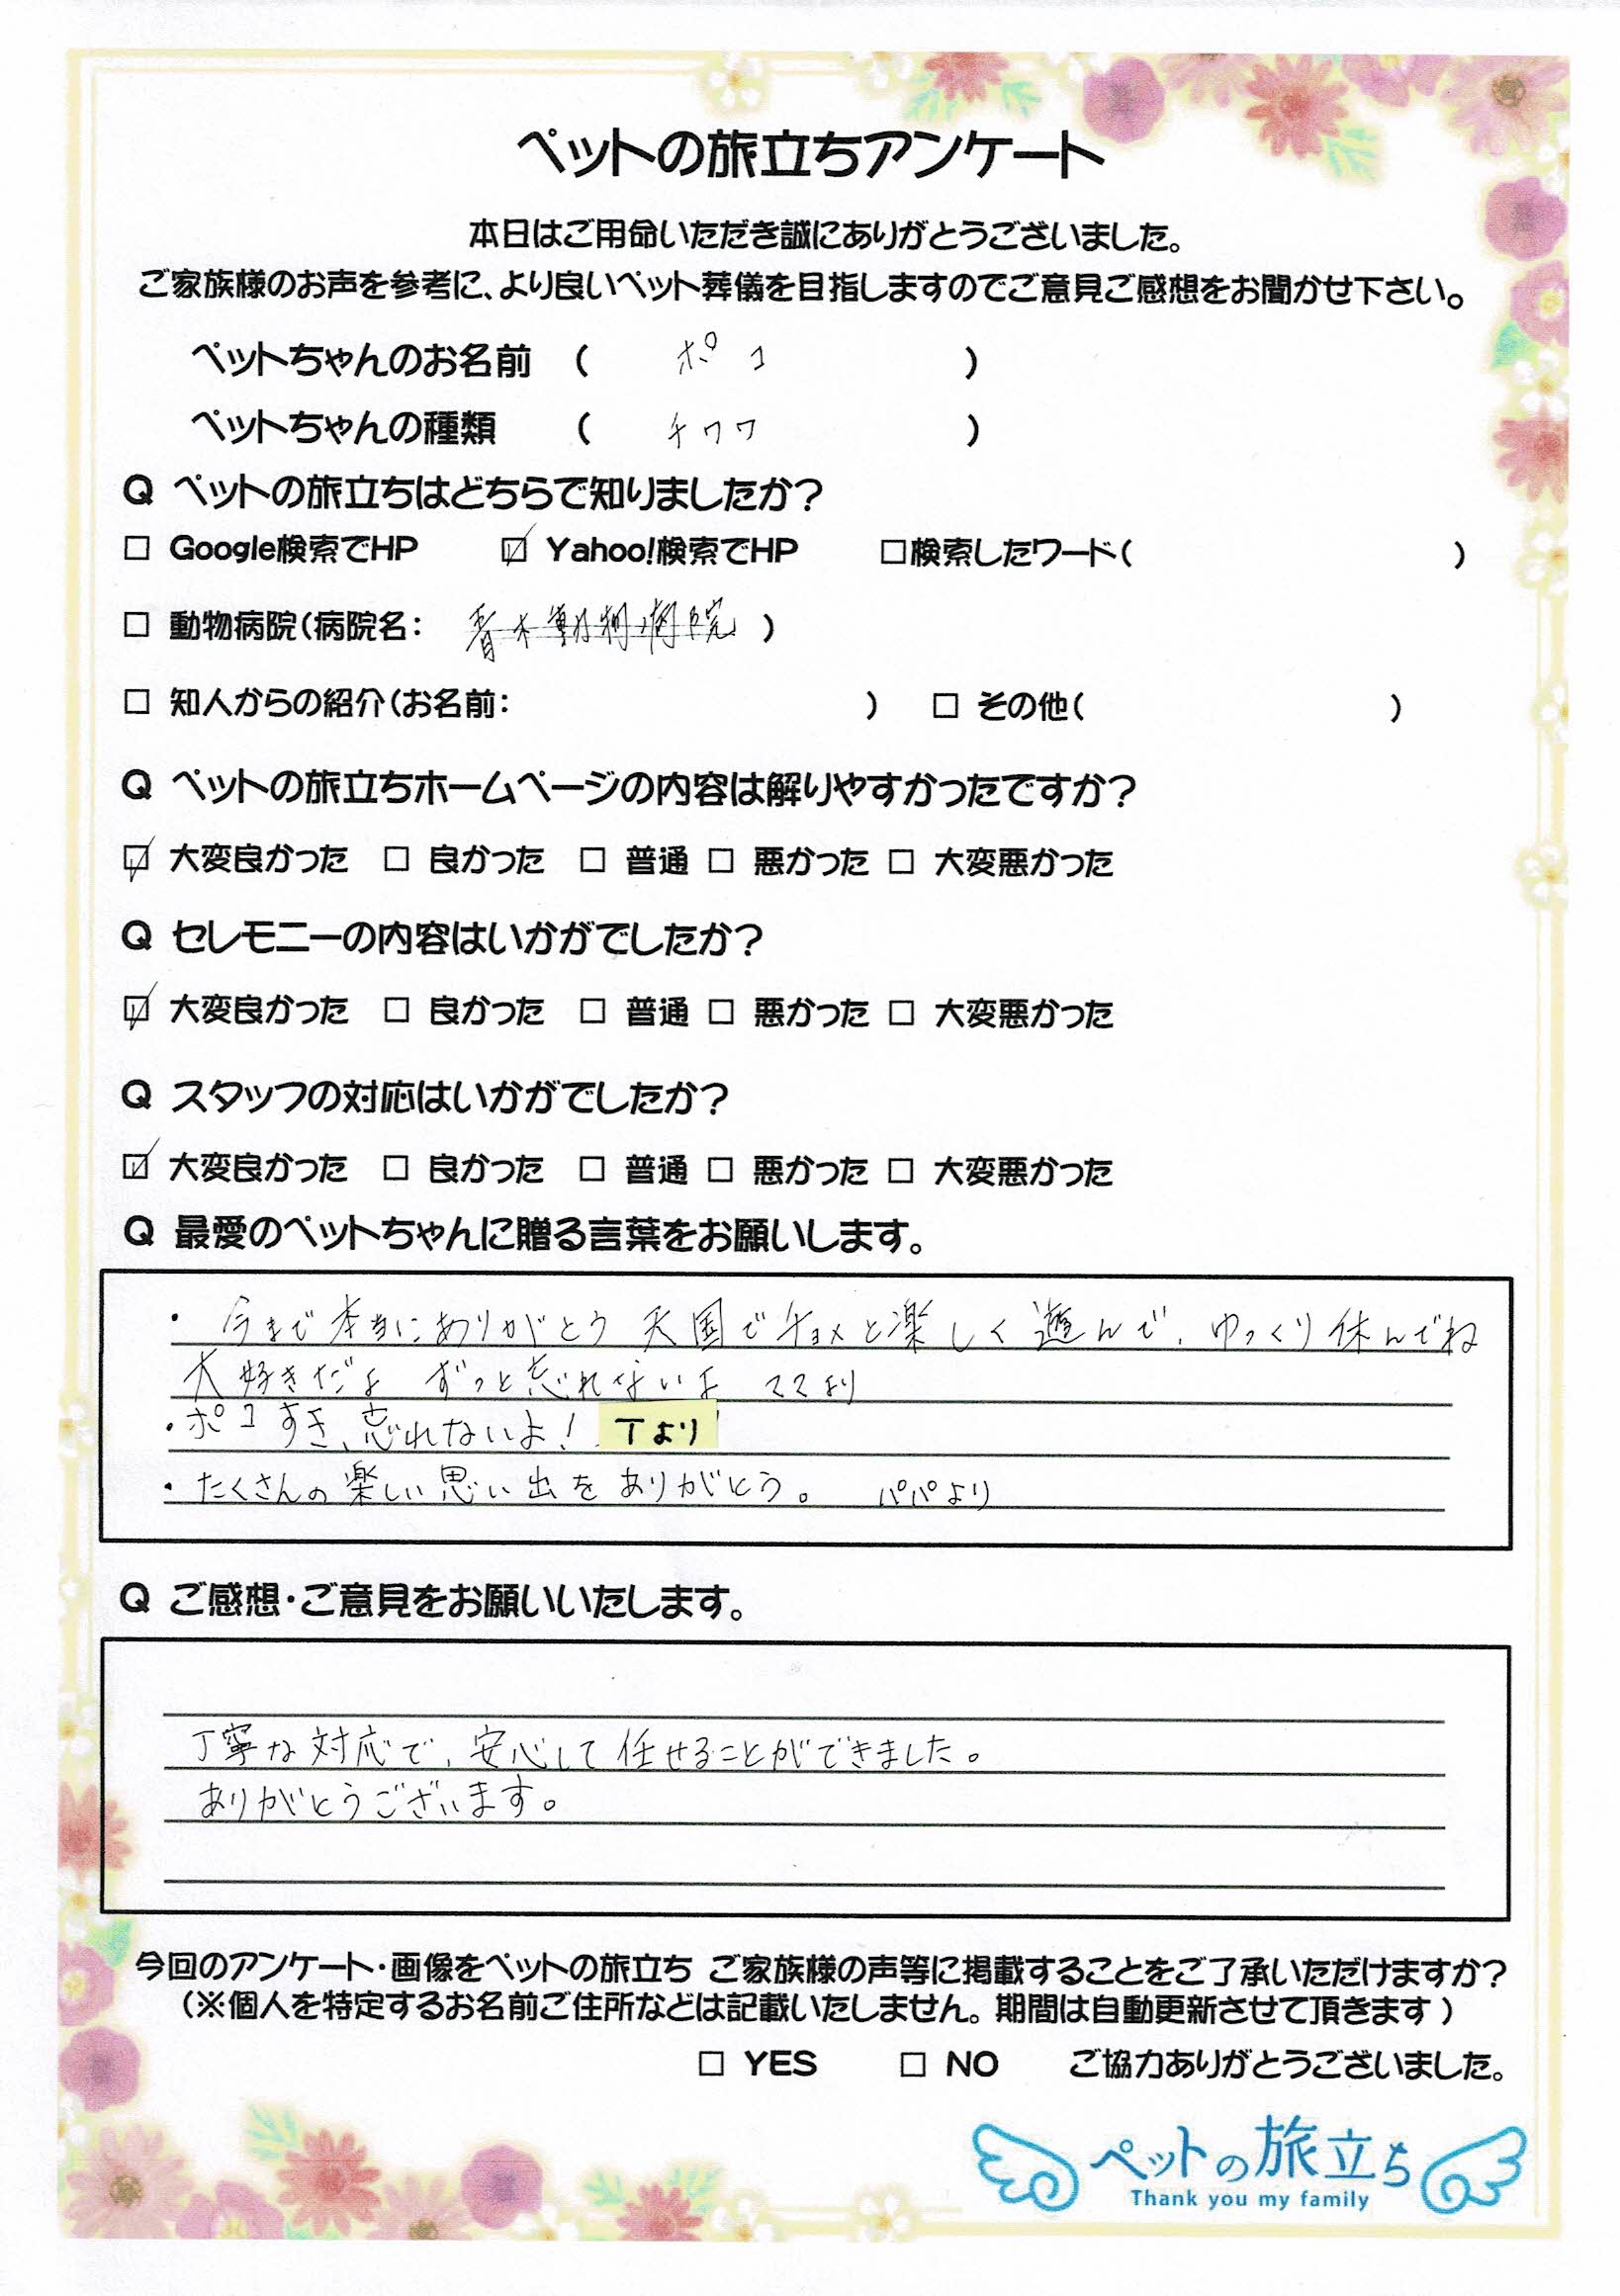 ペットの旅立ちアンケート
本日はご用命いただき誠にありがとうございました。
ご家族様のお声を参考に、より良いペット葬儀を目指しますのでご意見ご感想をお聞かせ下さい。
ペットちゃんのお名前 ( ポコ )
ペットちゃんの種類 ( チワワ )
Q ペットの旅立ちはどちらで知りましたか?
□ Google検索でHP ☑ Yahoo!検索でHP □検索したワード( )
□ 動物病院(病院名: 青木動物病院 )
□ 知人からの紹介(お名前: ) □ その他( )
Q ペットの旅立ちホームページの内容は解りやすかったですか?
☑ 大変良かった □ 良かった □ 普通 □ 悪かった □ 大変悪かった
Q セレモニーの内容はいかがでしたか?
☑ 大変良かった □ 良かった □ 普通 □ 悪かった □ 大変悪かった
Q スタッフの対応はいかがでしたか?
☑ 大変良かった □ 良かった □ 普通 □ 悪かった □ 大変悪かった
Q 最愛のペットちゃんに贈る言葉をお願いします。
・今まで本当にありがとう 天国でチョメと楽しく遊んで、ゆっくり休んでね
大好きだよ ずっと忘れないよ ママより
・ポコすき、忘れないよ! Tより
・たくさんの楽しい思い出をありがとう。 パパより
Q ご感想・ご意見をお願いいたします。
丁寧な対応で、安心して任せることができました。
ありがとうございます。
今回のアンケート・画像をペットの旅立ち ご家族様の声等に掲載することをご了承いただけますか?
(※個人を特定するお名前ご住所などは記載いたしません。期間は自動更新させて頂きます)
□ YES □ NO ご協力ありがとうございました。
ペットの旅立ち
Thank you my family